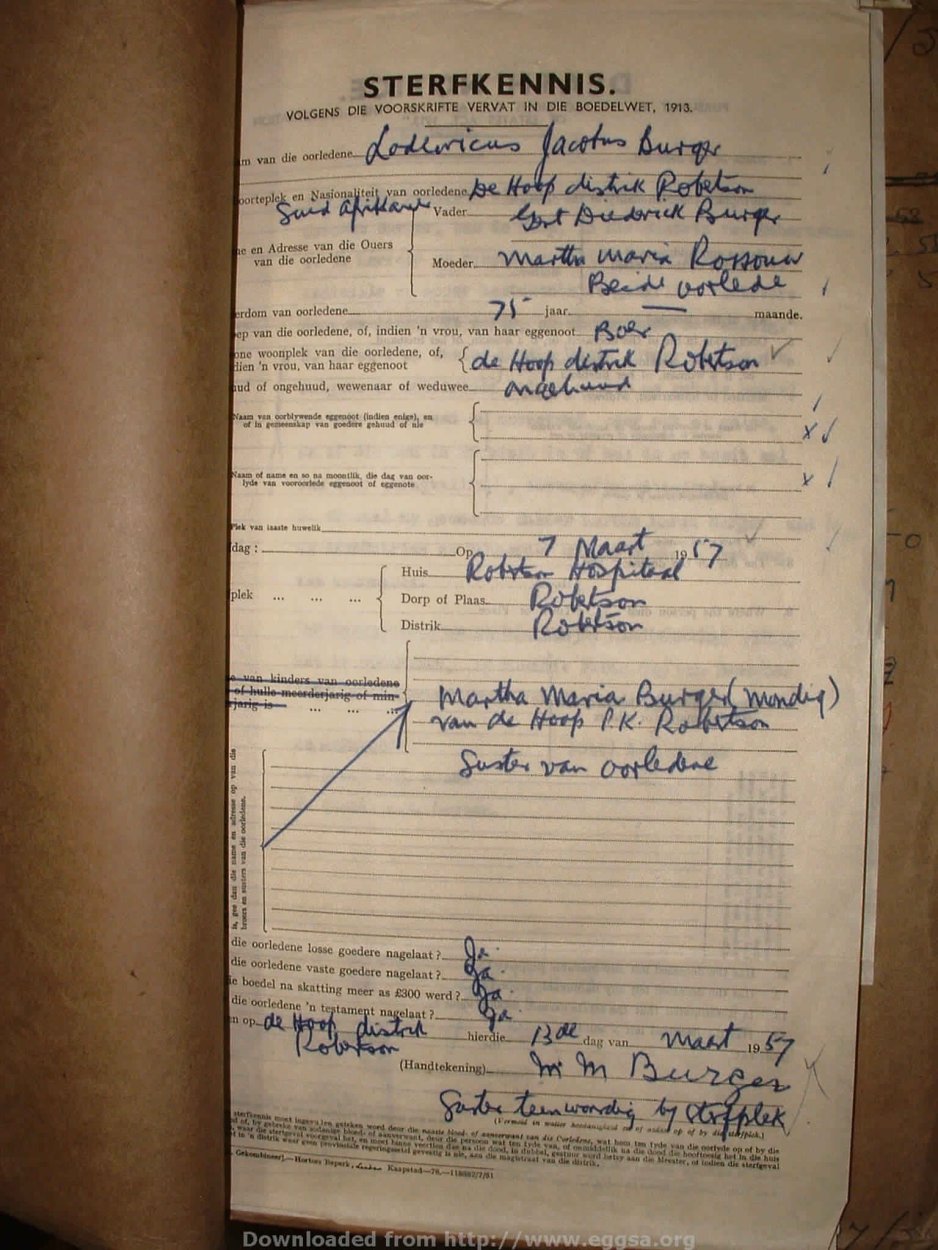 STERFKENNIS.
VOLGENS DIE VOORSKRIFTE VERVAT IN DIE BOEDELWET, 1913.
van die oorledene Lodewicus Jacobus Burger
oorteplek en Nasionaliteit van oorledene De Hoop distrik Robertson
Suid Afrikaner
Vader Diederick Burger
en Adresse van die Ouers
van die oorledene
Moeder Martha Maria Rossouw
Beide oorlede
erdom van oorledene 75 jaar. — maande.
ep van die oorledene, of, indien 'n vrou, van haar eggenoot Boer
one woonplek van die oorledene, of,
dien 'n vrou, van haar eggenoot
de Hoop distrik Robertson
ud of ongehuud, wewenaar of weduwee ongehuud
Naam van oorblywende eggenoot (indien enige), en
of in gemeenskap van goedere gehuud of nie
Naam of name en so na moontlik, die dag van oor-
lyde van vooroorlede eggenoot of eggenote
Plek van laaste huwelik
dag : Op 7 Maart 1957
Huis Robertson Hospitaal
plek ... ... ... Dorp of Plaas Robertson
Distrik Robertson
e van kinders van oorledene
of hulle meerderjarig of min-
rjarig is ... ... ...
Martha Maria Burger (mondig)
van de Hoop P.K. Robertson
Suster van oorledene
is, gee dan die name en adresse op van die
broers en susters van die oorledene.
die oorledene losse goedere nagelaat? Ja.
die oorledene vaste goedere nagelaat? Ja.
ie boedel na skatting meer as £300 werd? Ja.
die oorledene 'n testament nagelaat? Ja.
n op de Hoop distrik hierdie 13de dag van Maart 1957
Robertson
(Handtekening) M M Burger
Suster teenwoordig by sterfplek
Kaapstad
Downloaded from http://www.eggsa.org